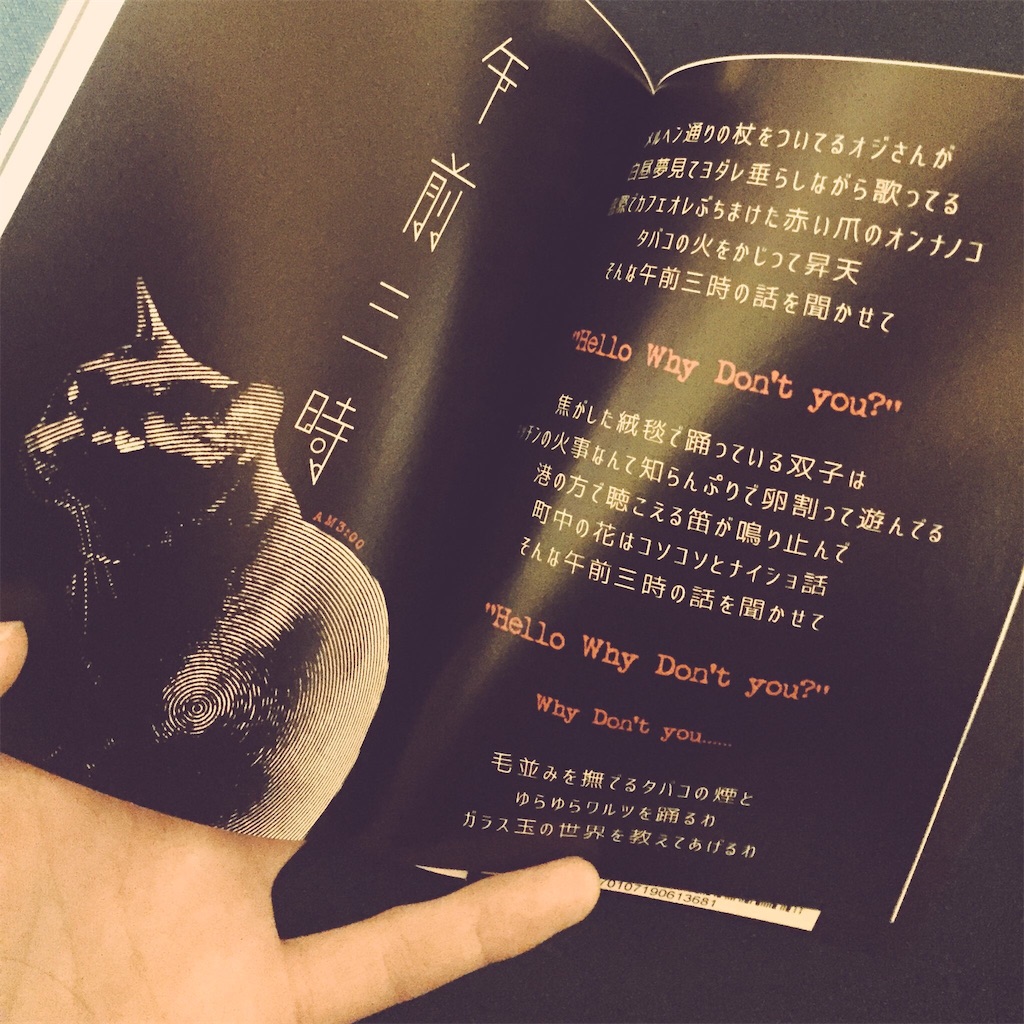 午前三時
AM3:00
メルヘン通りの杖をついてるオジさんが
白昼夢見てヨダレ垂らしながら歌ってる
でカフェオレぶちまけた赤い爪のオンナノコ
タバコの火をかじって昇天
そんな午前三時の話を聞かせて
"Hello Why Don't you?"
焦がした絨毯で踊っている双子は
キッチンの火事なんて知らんぷりで卵割って遊んでる
港の方で聴こえる笛が鳴り止んで
町中の花はコソコソとナイショ話
そんな午前三時の話を聞かせて
"Hello Why Don't you?"
Why Don't you......
毛並みを撫でるタバコの煙と
ゆらゆらワルツを踊るわ
ガラス玉の世界を教えてあげるわ
70107190613681